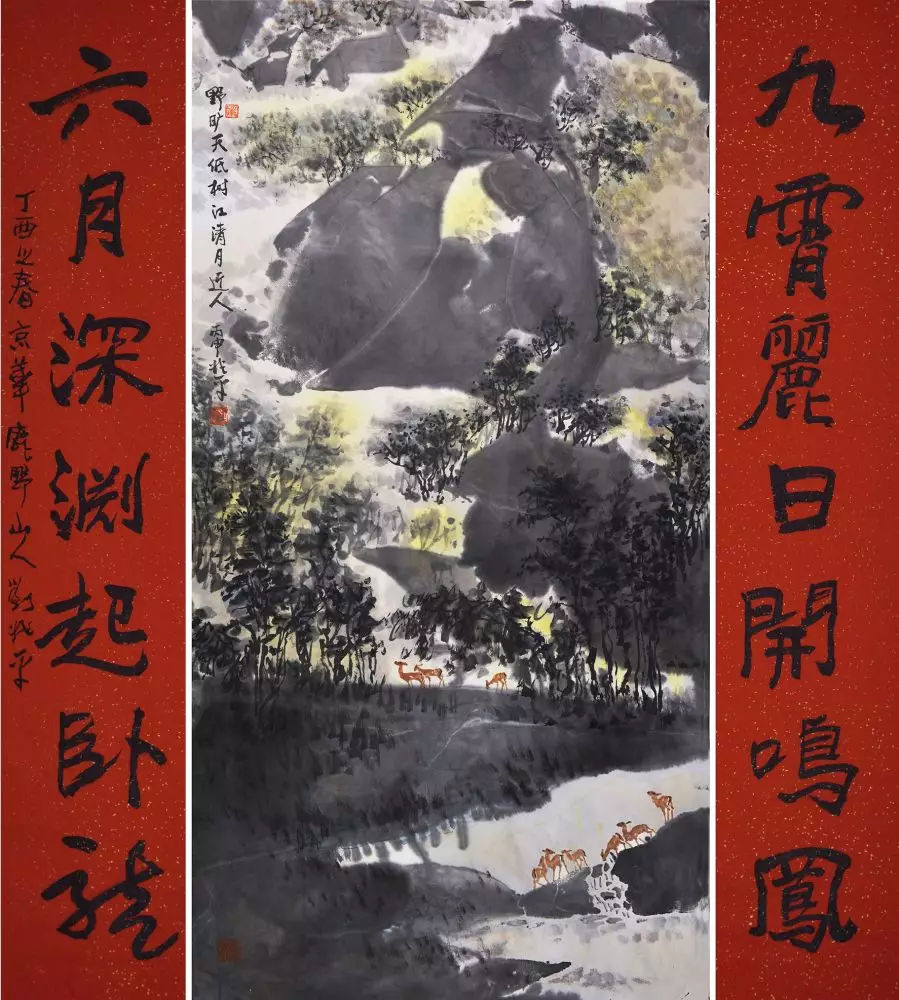 九霄麗日開鳴鳳
野旷天低树江清月近人
丙申兆平
六月深渊起卧龍
丁酉之春京華鹿野山人劉兆平